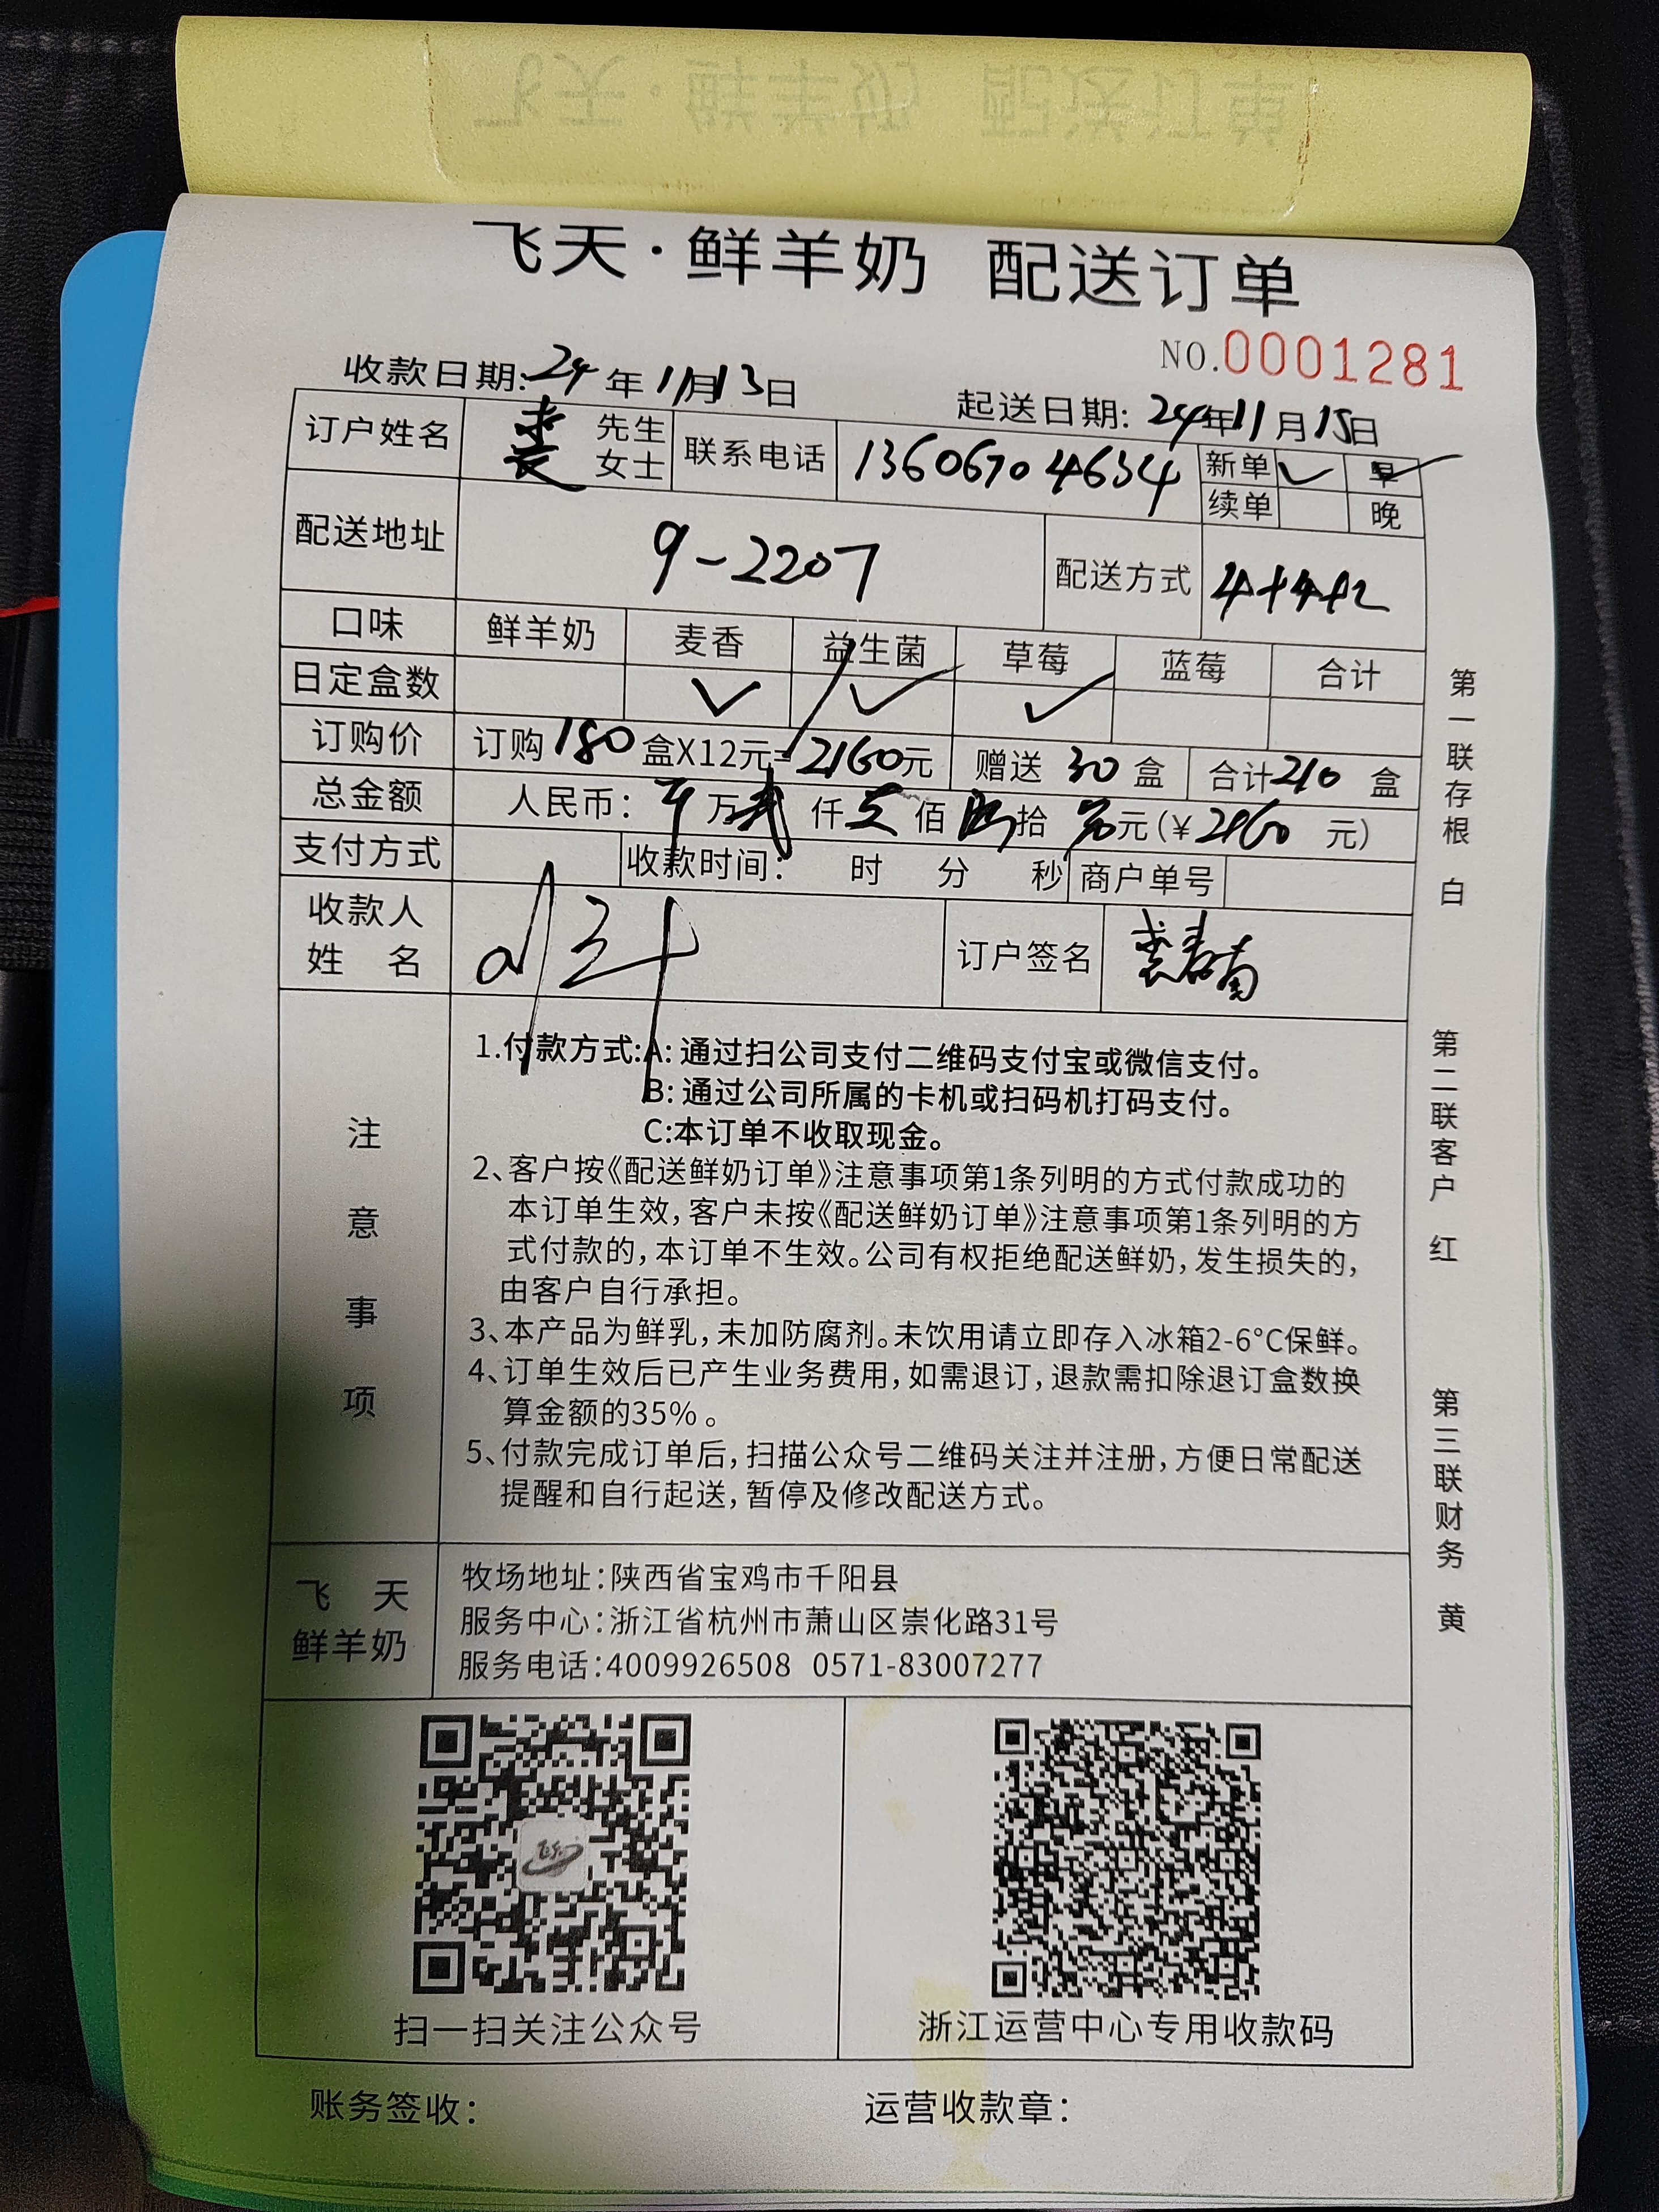 飞天·鲜羊奶 配送订单
NO.0001281
收款日期:24年11月13日
起送日期:24年11月15日
订户姓名 裘 先生 女士 联系电话 13606704634 新单 ✓ 早 ✓
续单 晚
配送地址 9-2207 配送方式 4+4+2
口味 鲜羊奶 麦香 益生菌 草莓 蓝莓 合计
日定盒数 ✓ ✓ ✓
订购价 订购180盒X12元=2160元 赠送30盒 合计210盒
总金额 人民币: 万 贰仟 佰 陆拾 元(¥2160元)
支付方式 收款时间: 时 分 秒 商户单号
收款人
姓 名
订户签名 裘
注意事项
1.付款方式:A:通过扫公司支付二维码支付宝或微信支付。
B:通过公司所属的卡机或扫码机打码支付。
C:本订单不收取现金。
2、客户按《配送鲜奶订单》注意事项第1条列明的方式付款成功的
本订单生效,客户未按《配送鲜奶订单》注意事项第1条列明的方
式付款的,本订单不生效。公司有权拒绝配送鲜奶,发生损失的,
由客户自行承担。
3、本产品为鲜乳,未加防腐剂。未饮用请立即存入冰箱2-6°C保鲜。
4、订单生效后已产生业务费用,如需退订,退款需扣除退订盒数换
算金额的35%。
5、付款完成订单后,扫描公众号二维码关注并注册,方便日常配送
提醒和自行起送,暂停及修改配送方式。
飞 天
鲜羊奶
牧场地址:陕西省宝鸡市千阳县
服务中心:浙江省杭州市萧山区崇化路31号
服务电话:4009926508 0571-83007277
扫一扫关注公众号
浙江运营中心专用收款码
账务签收:
运营收款章:
第一联存根 白
第二联客户 红
第三联财务 黄